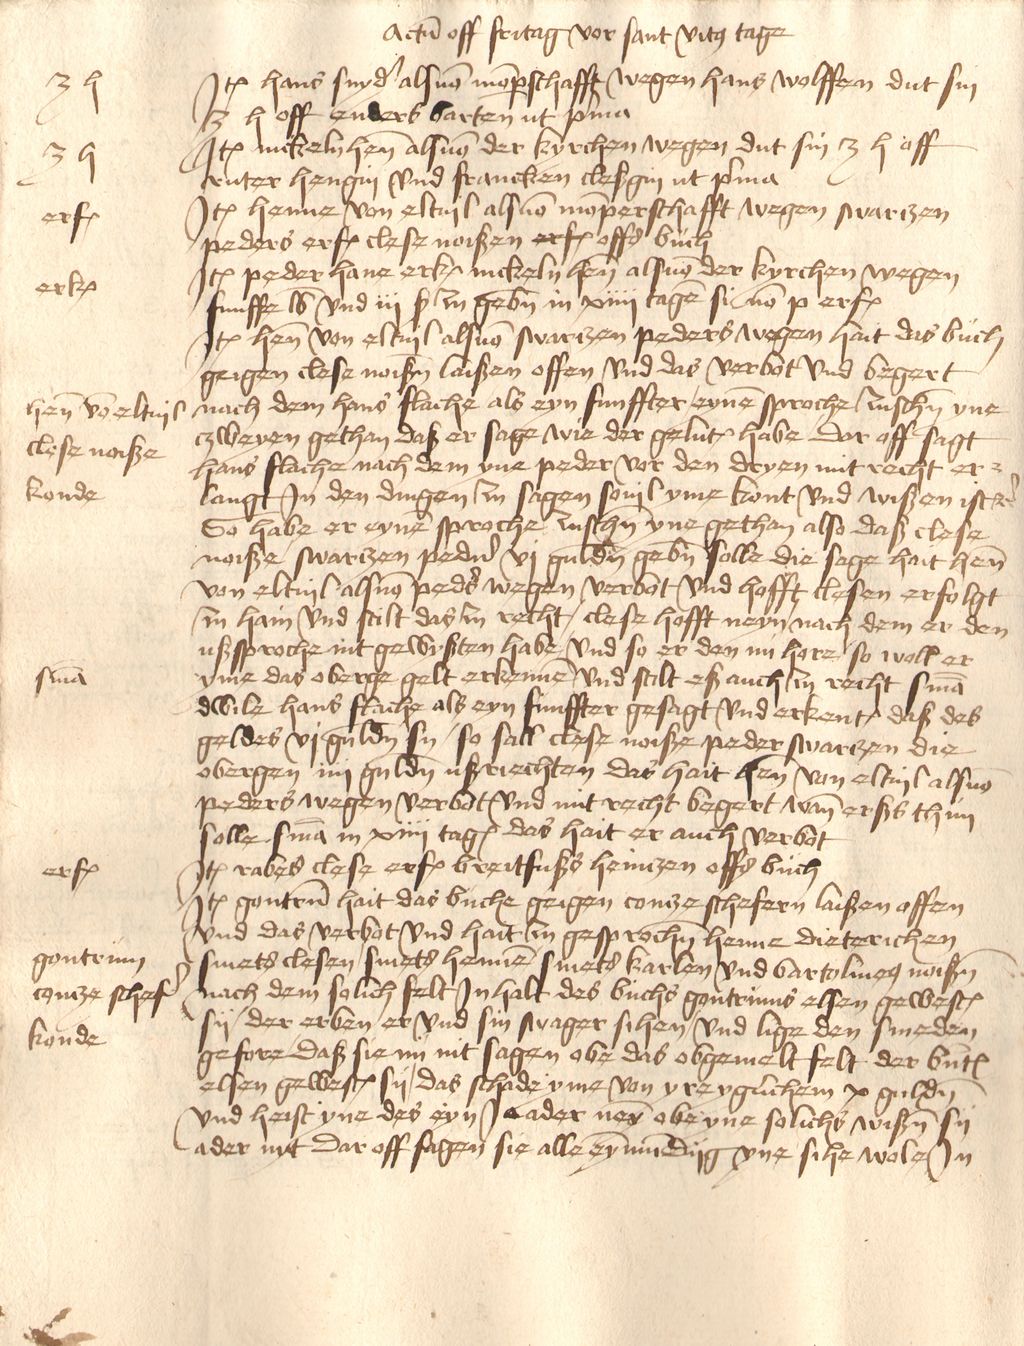 Actu off fritag vor sant vits tage
3 h
Jt hans snyd' alsuo mo'pschafft wegen hans wolffen dut sin
3 h off enders garten ut p'ma
3 h
Jt nickeln hen alsuo der kyrchen wegen dut sin 3 h off
ruter hengin und francken clesgin ut p'ma
erf
Jt henne von eltuil alsuo mo'perschafft wegen swarczen
peders erf clese noißen erf offs buch
erk
Jt peder hane erk nickeln hen alsuo der kyrchen wegen
funffe lb und iii ß zu geben in xiiii tage si no p erf
Jt hen von eltuil alsuo swarczen peders wegen hait das buch
geigen clese noißen laißen offen und das verbot und begert
hen vo eltuil
clese noiße
konde
nach dem hans flache als eyn funffter eyne sproche zuschen yne
czweyen gethan daß er sage wie der gelut habe Dar off sagt
hans flache nach dem yne peder vor den dryen mit recht er
langt Jn den dingen zu sagen souil yme kont und wißen ist
So habe er eyne sproche zuschen yne gethan also daß clese
noiße swarczen peder vi gulden geben solle die sage hait hen
von eltuil alsuo peders wegen verbot und hofft clesen erfolgt
zu hain und stilt das zu recht / clese hofft neyn nach dem er den
ußsproche nit gewysten habe und so er den nu hore so woll er
yme das oberge gelt erkenne und stilt eß auch zu recht Sma
sma
dwile hans flache als eyn funffter gesagt und erkent daß des
geldes vi gulden sy / so sall clese noiße peder swarczen die
obergen iiii gulden ußriechten das hait hen von eltuil alsuo
peders wegen verbot und mit recht begert wan erß thun
solle sma in xiiii tag das hait er auch verbot
erf
Jt rabes clese erf breitfußs heinczen offs buch
Jt gontru hait das buche geigen concze schefern laißen offen
und das verbot und hait zu gesprochen henne dieterichen
gontrum
concze schef'
konde
smets clesen smets henne smets karlen und bartolmeus noißen
nach dem solich felt Jnhalt des buchs gontrums elsen gewest
sij / der erben er und sin swager sihen und lige den smeden
gefore daß sie nu nit sagen obe das obgemelt felt der bunt
elsen gewest sij / das schade yme von yre yglichem x gulden
und heist yne des eyn Ja ader neyn obe yne solichs wißen sij
ader nyt Dar off sagen sie alle eynmudiig yne sihe wole Jn